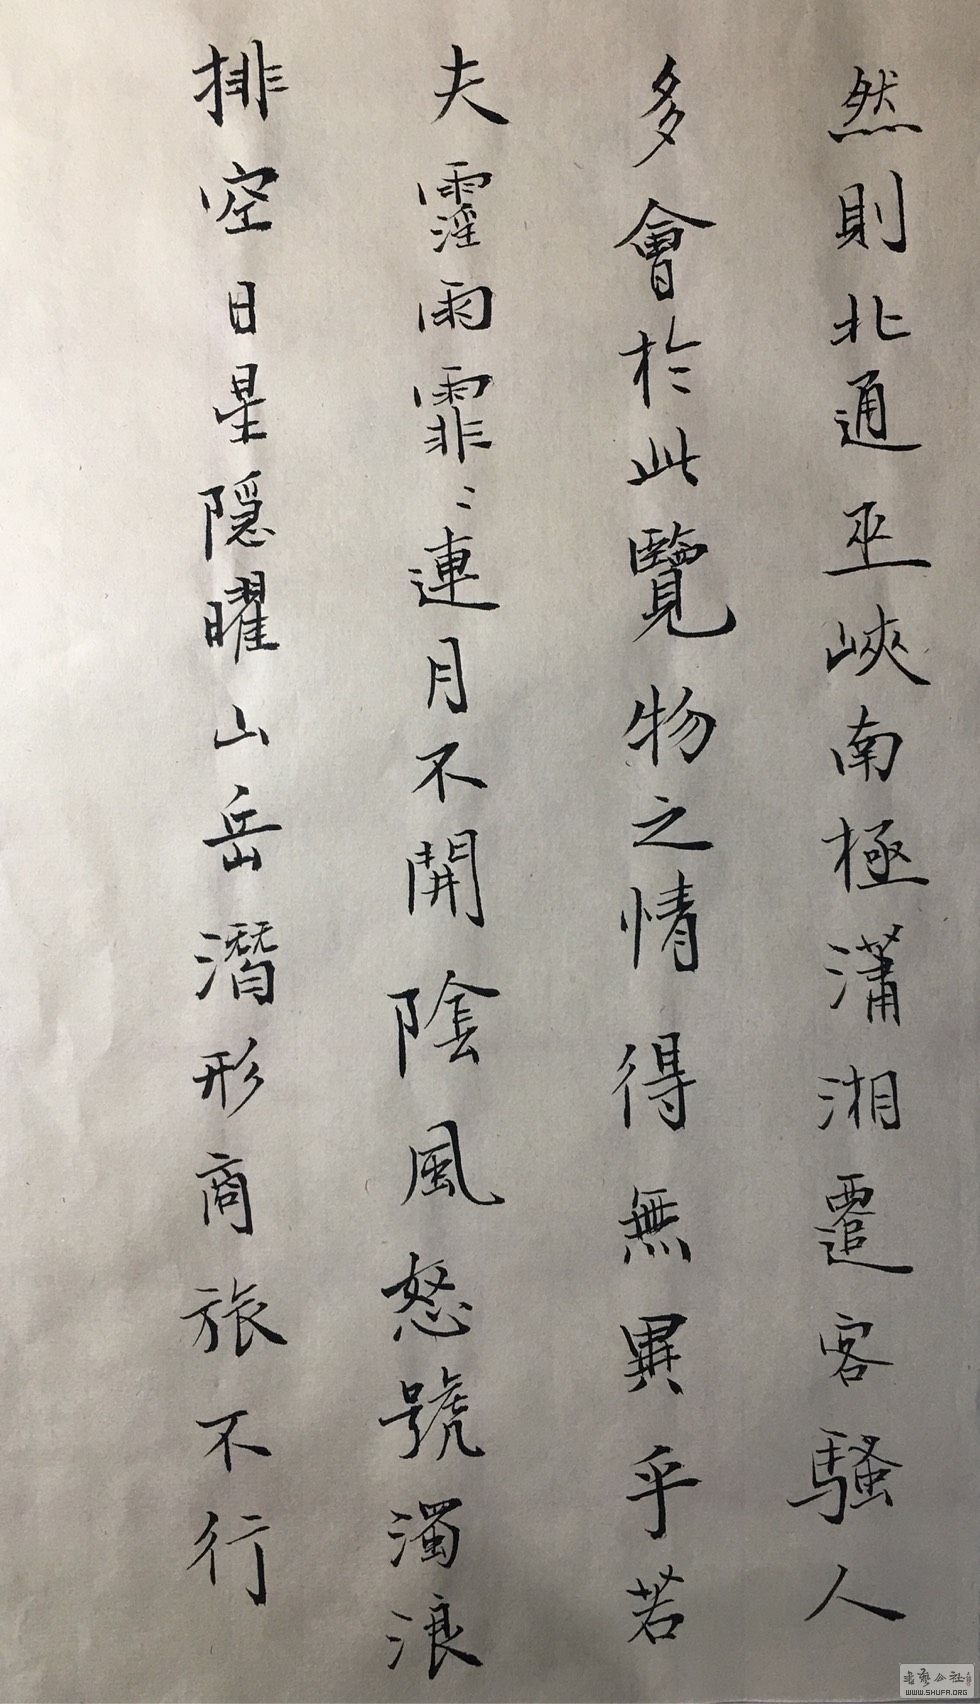 然則北通巫峽南極瀟湘遷客騷人
多會於此覽物之情得無異乎若
夫霪雨霏〻連月不開陰風怒號濁浪
排空日星隱曜山岳潛形商旅不行
WWW.SHUFA.ORG